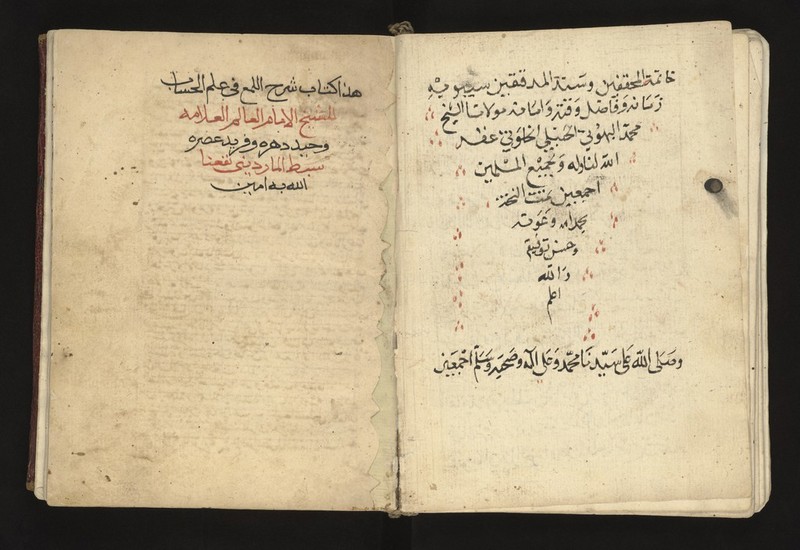 خاتمة المحققين وسند المدققين سيبويه
زمانه وفاضل وقته واوانه مولانا الشيخ
محمد البهوتي الحنبلي الخلوتي عفر
الله لنا وله ولجميع المسلمين
اجمعين تمت النسخة
بحمد الله وعونه
وحسن توفيقه
والله
اعلم
وصلى الله على سيدنا محمد وعلى اله وصحبه وسلم اجمعين
هذا كتاب شرح اللمع في علم الحساب
للشيخ الامام العالم العلامه
وحيد دهره وفريد عصره
سبط المارديني نفعنا
الله به امين